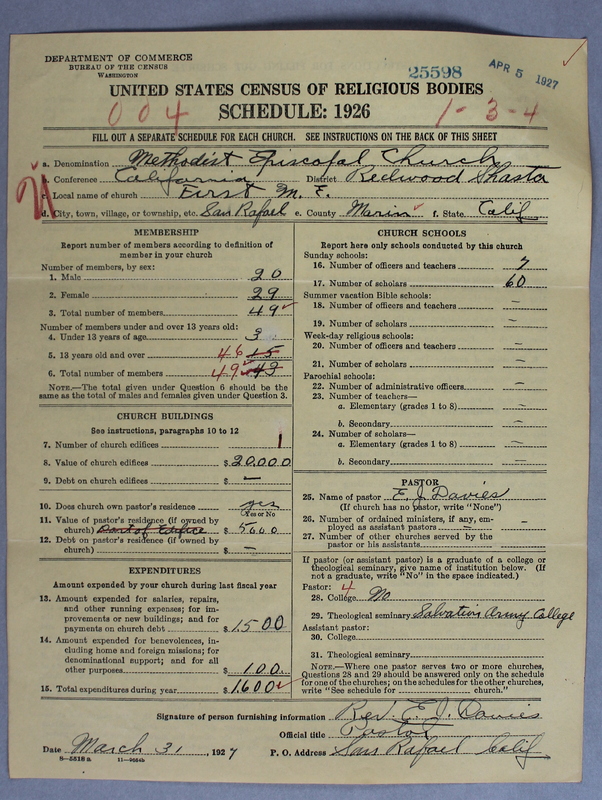 DEPARTMENT OF COMMERCE
BUREAU OF THE CENSUS
WASHINGTON
25598
APR 5 1927
UNITED STATES CENSUS OF RELIGIOUS BODIES
004
SCHEDULE: 1926
1-3-4
FILL OUT A SEPARATE SCHEDULE FOR EACH CHURCH. SEE INSTRUCTIONS ON THE BACK OF THIS SHEET
a. Denomination Methodist Episcopal Church
b. Conference California District Redwood Shasta
c. Local name of church First M. E.
d. City, town, village, or township, etc. San Rafael e. County Marin f. State Calif
MEMBERSHIP
Report number of members according to definition of member in your church
Number of members, by sex:
1. Male 20
2. Female 29
3. Total number of members 49
Number of members under and over 13 years old:
4. Under 13 years of age 3
5. 13 years old and over 46 15
6. Total number of members 49 43
NOTE.—The total given under Question 6 should be the same as the total of males and females given under Question 3.
CHURCH BUILDINGS
See instructions, paragraphs 10 to 12
7. Number of church edifices 1
8. Value of church edifices $20,000
9. Debt on church edifices $ —
10. Does church own pastor's residence yes
Yes or No
11. Value of pastor's residence (if owned by church) Part of Edifice $ 5000
12. Debt on pastor's residence (if owned by church) $ —
EXPENDITURES
Amount expended by your church during last fiscal year
13. Amount expended for salaries, repairs, and other running expenses; for improvements or new buildings; and for payments on church debt $1500
14. Amount expended for benevolences, including home and foreign missions; for denominational support; and for all other purposes $ 100
15. Total expenditures during year $1600
CHURCH SCHOOLS
Report here only schools conducted by this church
Sunday schools:
16. Number of officers and teachers 7
17. Number of scholars 60
Summer vacation Bible schools:
18. Number of officers and teachers —
19. Number of scholars —
Week-day religious schools:
20. Number of officers and teachers —
21. Number of scholars —
Parochial schools:
22. Number of administrative officers —
23. Number of teachers—
a. Elementary (grades 1 to 8) —
b. Secondary —
24. Number of scholars—
a. Elementary (grades 1 to 8) —
b. Secondary —
PASTOR
25. Name of pastor E. J. Davies
(If church has no pastor, write "None")
26. Number of ordained ministers, if any, employed as assistant pastors —
27. Number of other churches served by the pastor or his assistants —
If pastor (or assistant pastor) is a graduate of a college or theological seminary, give name of institution below. (If not a graduate, write "No" in the space indicated.)
Pastor: 4
28. College No
29. Theological seminary Salvation Army College
Assistant pastor:
30. College
31. Theological seminary
NOTE.—Where one pastor serves two or more churches, Questions 28 and 29 should be answered only on the schedule for one of the churches; on the schedules for the other churches, write "See schedule for church."
Signature of person furnishing information Rev. E. J. Davies
Official title Pastor
Date March 31, 1927 P. O. Address San Rafael Calif
8—5518 a 11—9554b